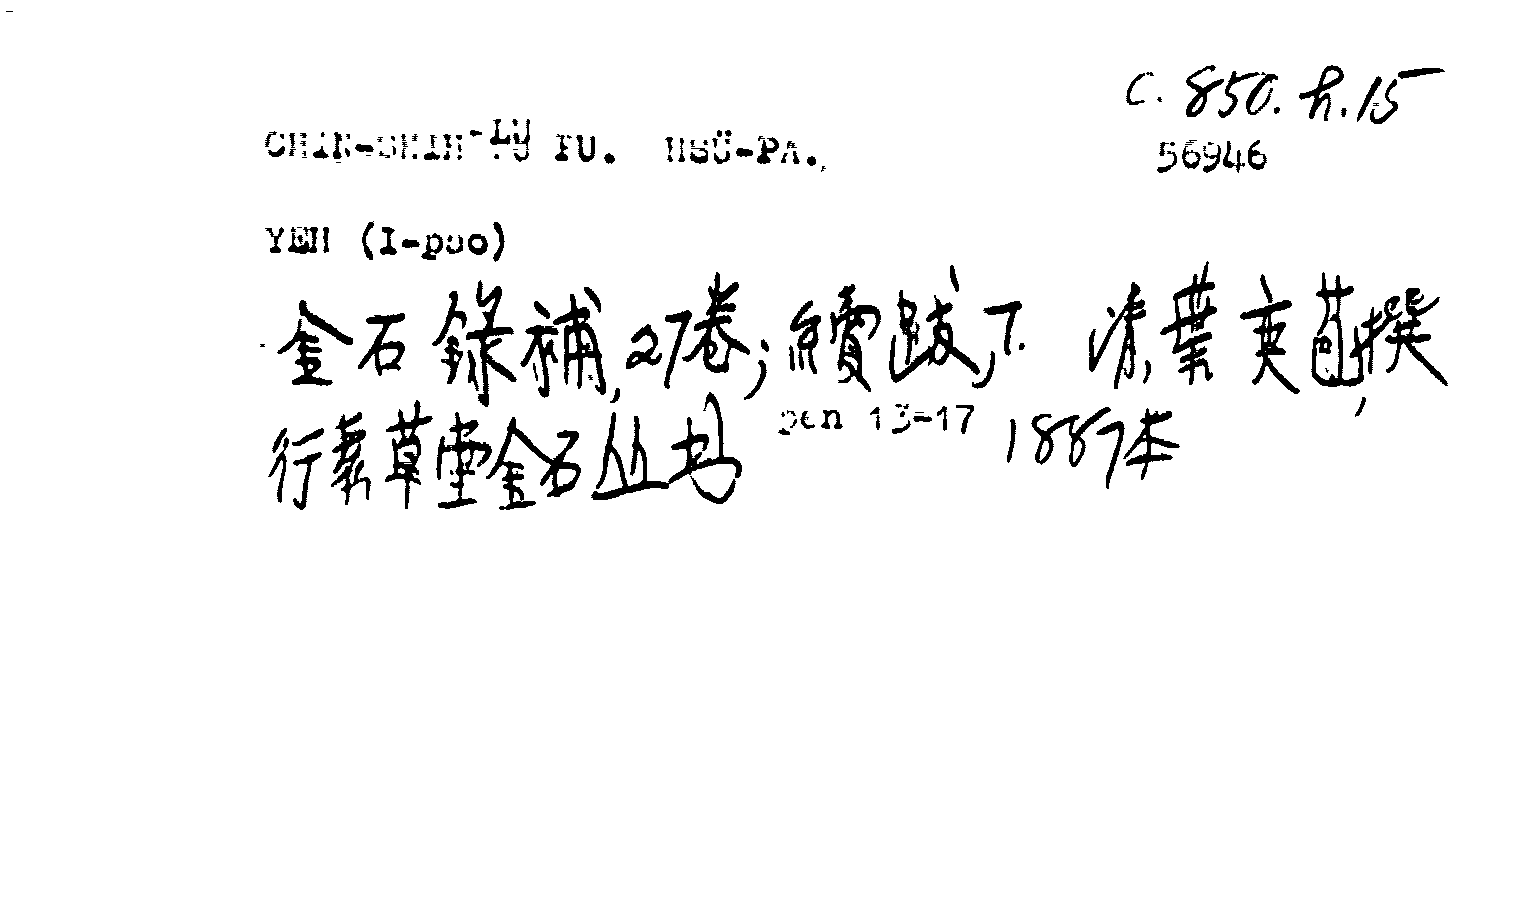 C. 850. h. 15
CHIN-SHIH-LU PU. HSÜ-PA.
56946
YEH (I-pao)
金石錄補, 27卷; 續跋, 7. 清葉奕苞撰,
行素草堂金石丛书 pen 13-17 1887本